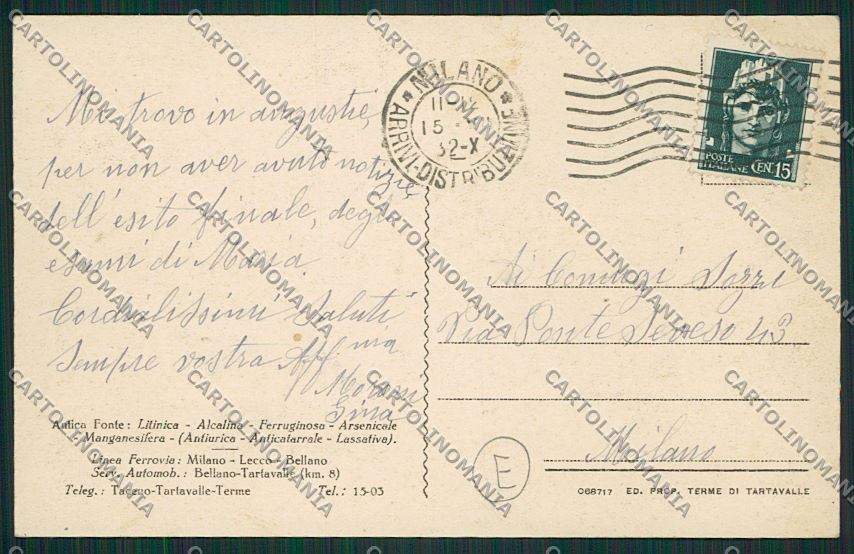 Mi trovo in angustie,
per non aver avuto notizie
dell'esito finale, degli
esami di Maria.
Cordialissimi Saluti
sempre vostra Aff.ma
Gina
Antica Fonte: Litinica - Alcalina - Ferruginosa - Arsenicale
Manganesifera - (Antiurica - Anticatarrale - Lassativa).
Linea Ferrovia: Milano - Lecco - Bellano
Serv. Automob.: Bellano-Tartavalle (km. 8)
Teleg.: Taceno-Tartavalle-Terme Tel.: 15-03
* MILANO *
15
32-X
ARRIVI-DISTRIBUZIONE
POSTE
ITALIANE CEN. 15
Ai Coniugi
Via Ponte Seveso 43
Milano
E
068717 ED. PROP. TERME DI TARTAVALLE
CARTOLINOMANIA